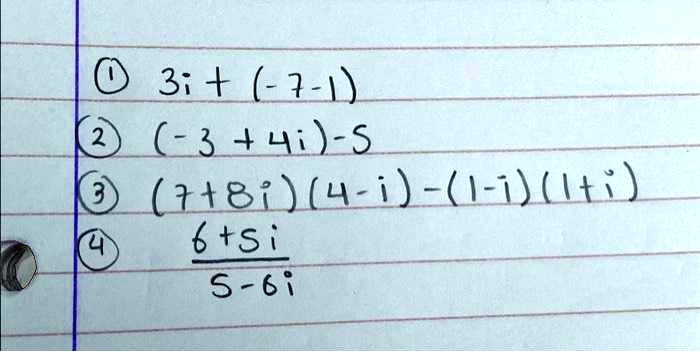 ① 3i + (-7-1)
② (-3 +4i)-5
③ (7+8i)(4-i)-(1-i)(1+i)
④ 6+5i
5-6i